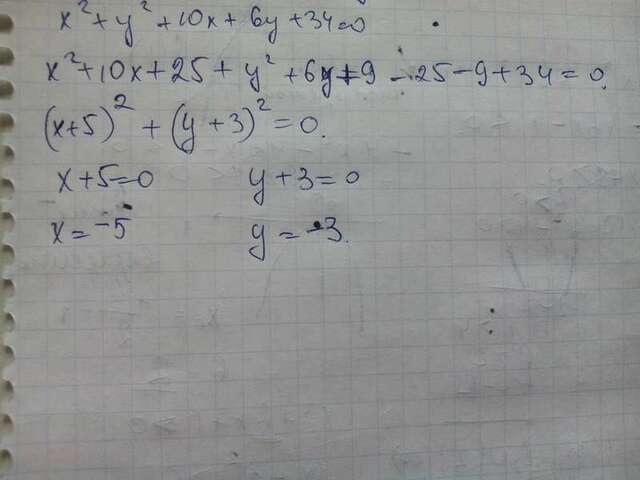 x² + y² + 10x + 6y + 34 = 0
x² + 10x + 25 + y² + 6y + 9 - 25 - 9 + 34 = 0.
(x+5)² + (y+3)² = 0.
x + 5 = 0 y + 3 = 0
x = -5 y = -3.